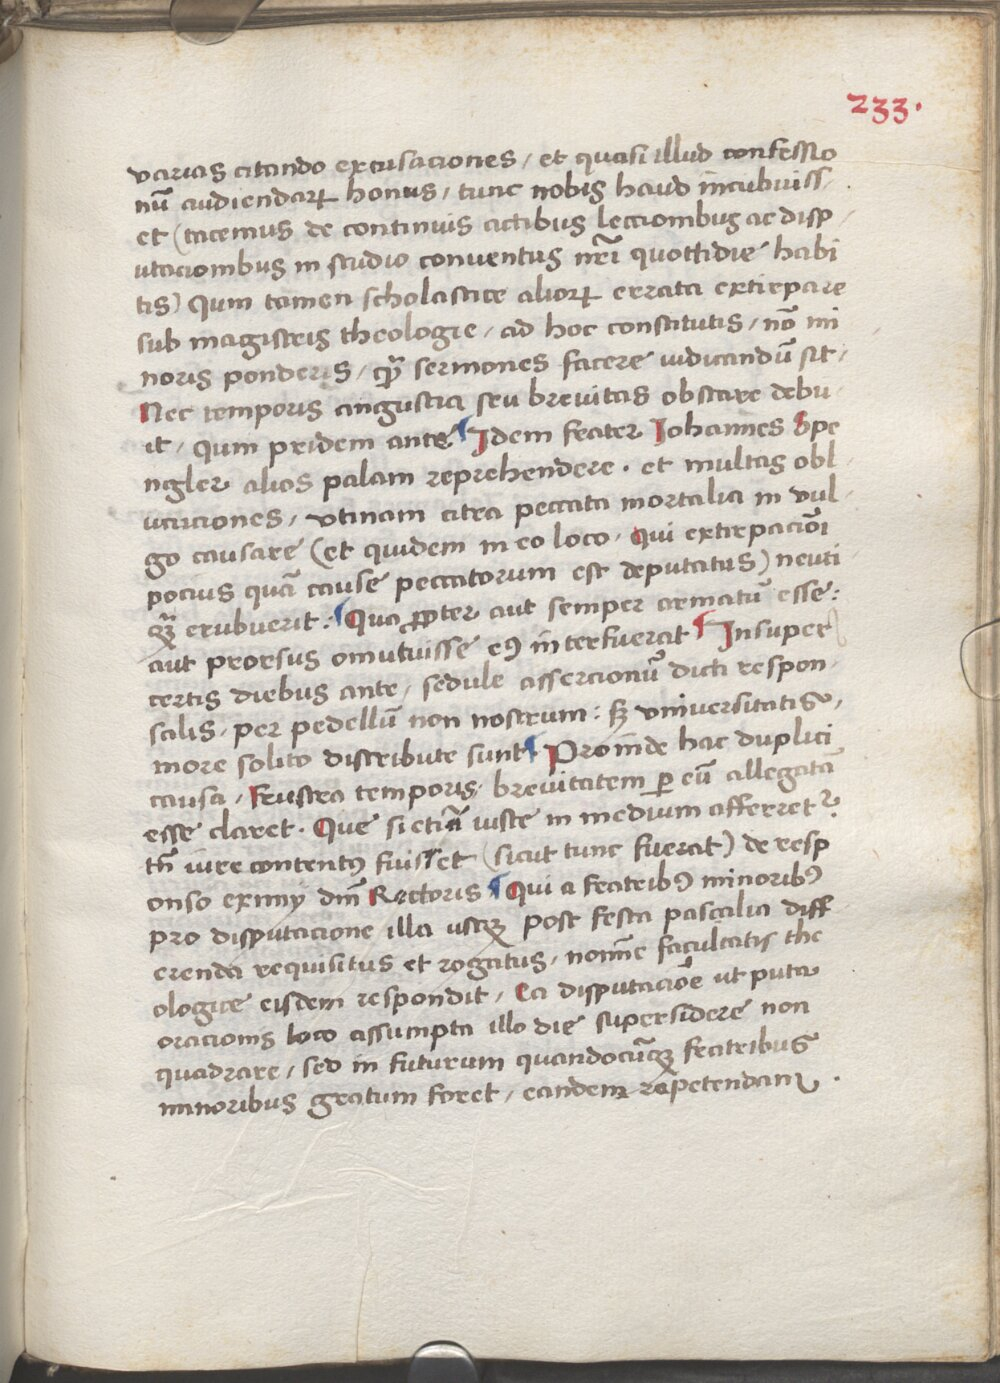 233.
varias citando excusaciones / et quasi illud confessio
nū audiendarꝝ honus / tunc nobis haud incubuiss /
et (tacemus de continuis actibus leccionibus ac disp /
utacionibus in studio conventus nr̄i quottidie habi
tis) Qum tamen scholastice aliorꝝ errata extirpare
sub magistris theologie / ad hoc constitutis / nō mi
noris ponderis / qꝫ̄ sermones facere iudicandū sit /
Nec temporis angustia seu brevitas obstare debu /
it / qum pridem ante ¶ Idem frater Johannes Spe
ngler alios palam reprehendere . et multas obl /
ucuciones / vtinam citra peccata mortalia in vul /
go causare (et quidem in eo loco . Qui extirpaciōi
pocius quā cause peccatorum est deputatus) neuti
qꝫ̄ erubuerit : ¶ Qua ꝓpter aut semper armatū esse :
aut prorsus omutuisse eꝰ interfuerat ¶ Insuper
certis diebus ante / sedule assercionū dicti respon /
salis / per pedellū non nostrum : sꝫ vniversitatis /
more solito distribute sunt ¶ Proinde hac duplici
causa / frustra temporis / brevitatem ꝑ eū allegatā
esse claret . Que si etiā iuste in medium afferretᷣ /
tn̄ iure contentꝰ fuisset (sicut tunc fuerat) de resp
onso eximij dn̄i Rectoris ¶ Qui a fratribꝰ minoribꝰ
pro disputacione illa usqꝫ post festa pascalia diff
erenda requisitus et rogatus / nomīe facultatis the
ologice eisdem respondit / Ea disputaciōe ut puta
oracionis loco assumpta illo die supersidere non
quadrare / sed in futurum quandocūqꝫ fratribus
minoribus gratum foret / eandem repetendam .